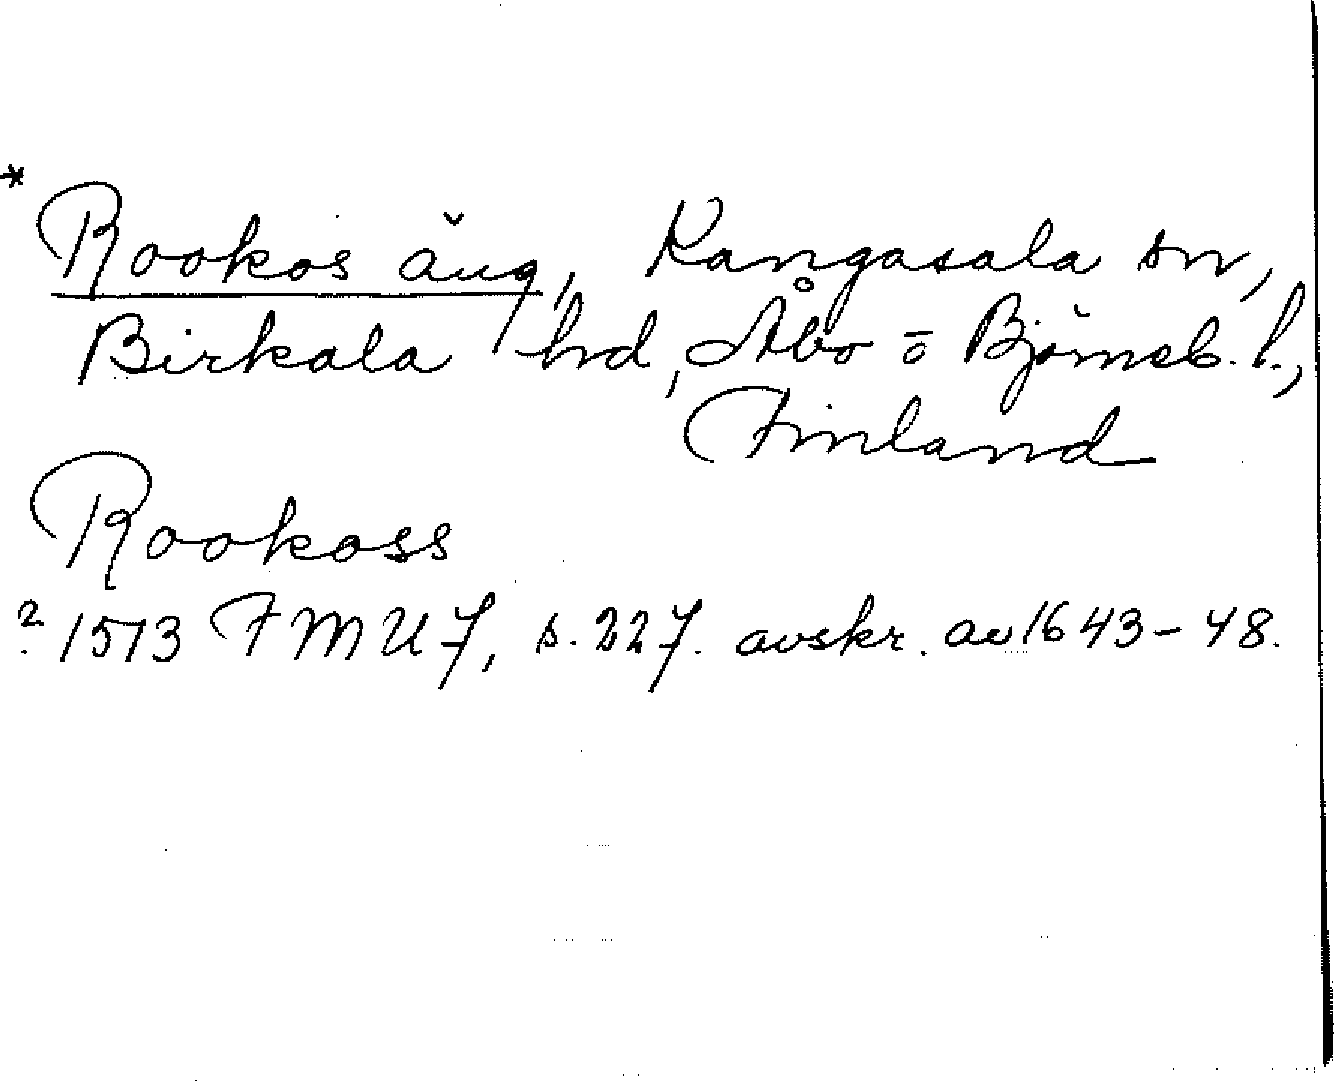 * Rookos äng, Kangasala sn,
Birkala hrd, Åbo o Björneb. l.,
Finland
Rookoss
? 1513 FMU 7, s. 227. avskr. av 1643-48.